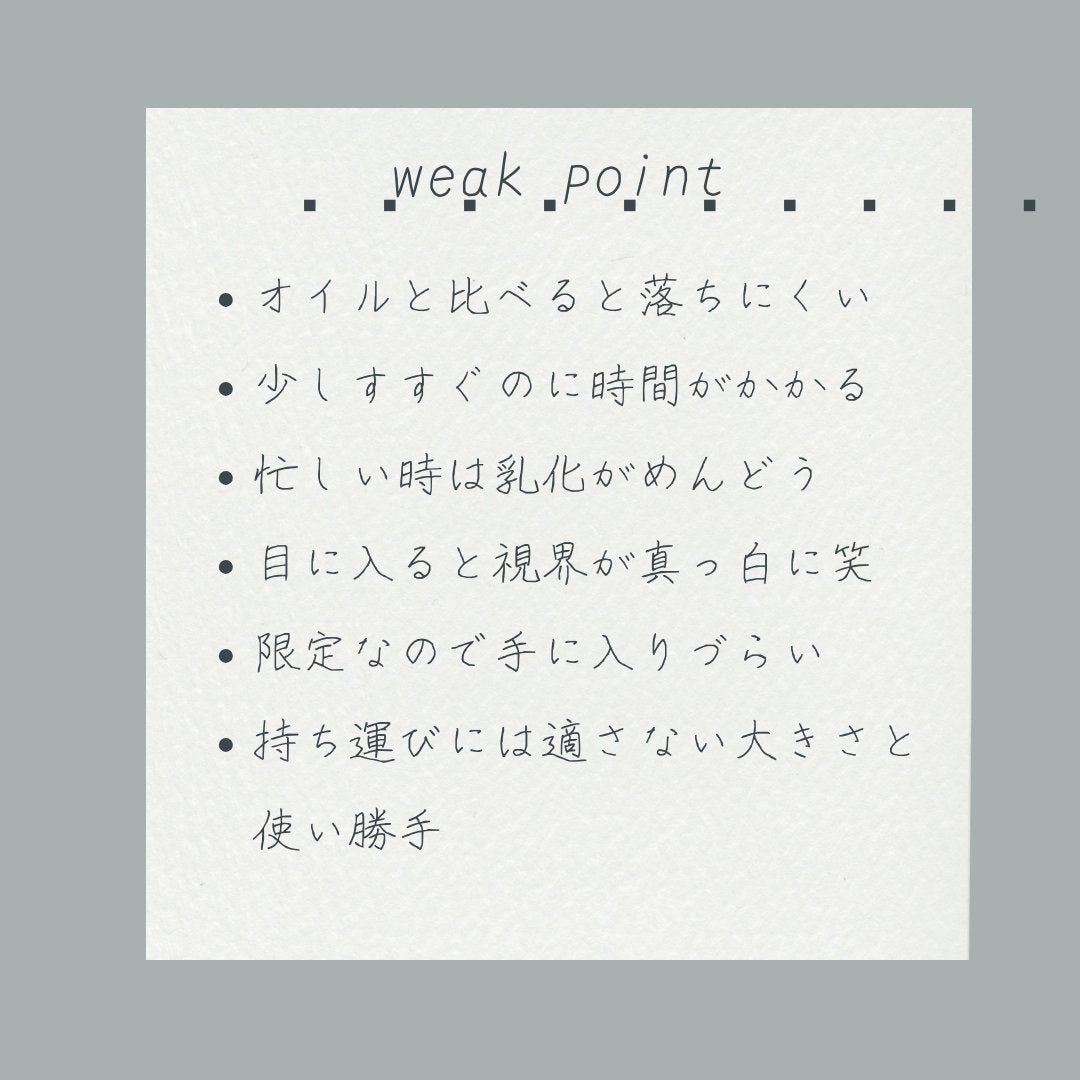 weak point
• オイルと比べると落ちにくい
• 少しすすぐのに時間がかかる
• 忙しい時は乳化がめんどう
• 目に入ると視界が真っ白に笑
• 限定なので手に入りづらい
• 持ち運びには適さない大きさと
使い勝手